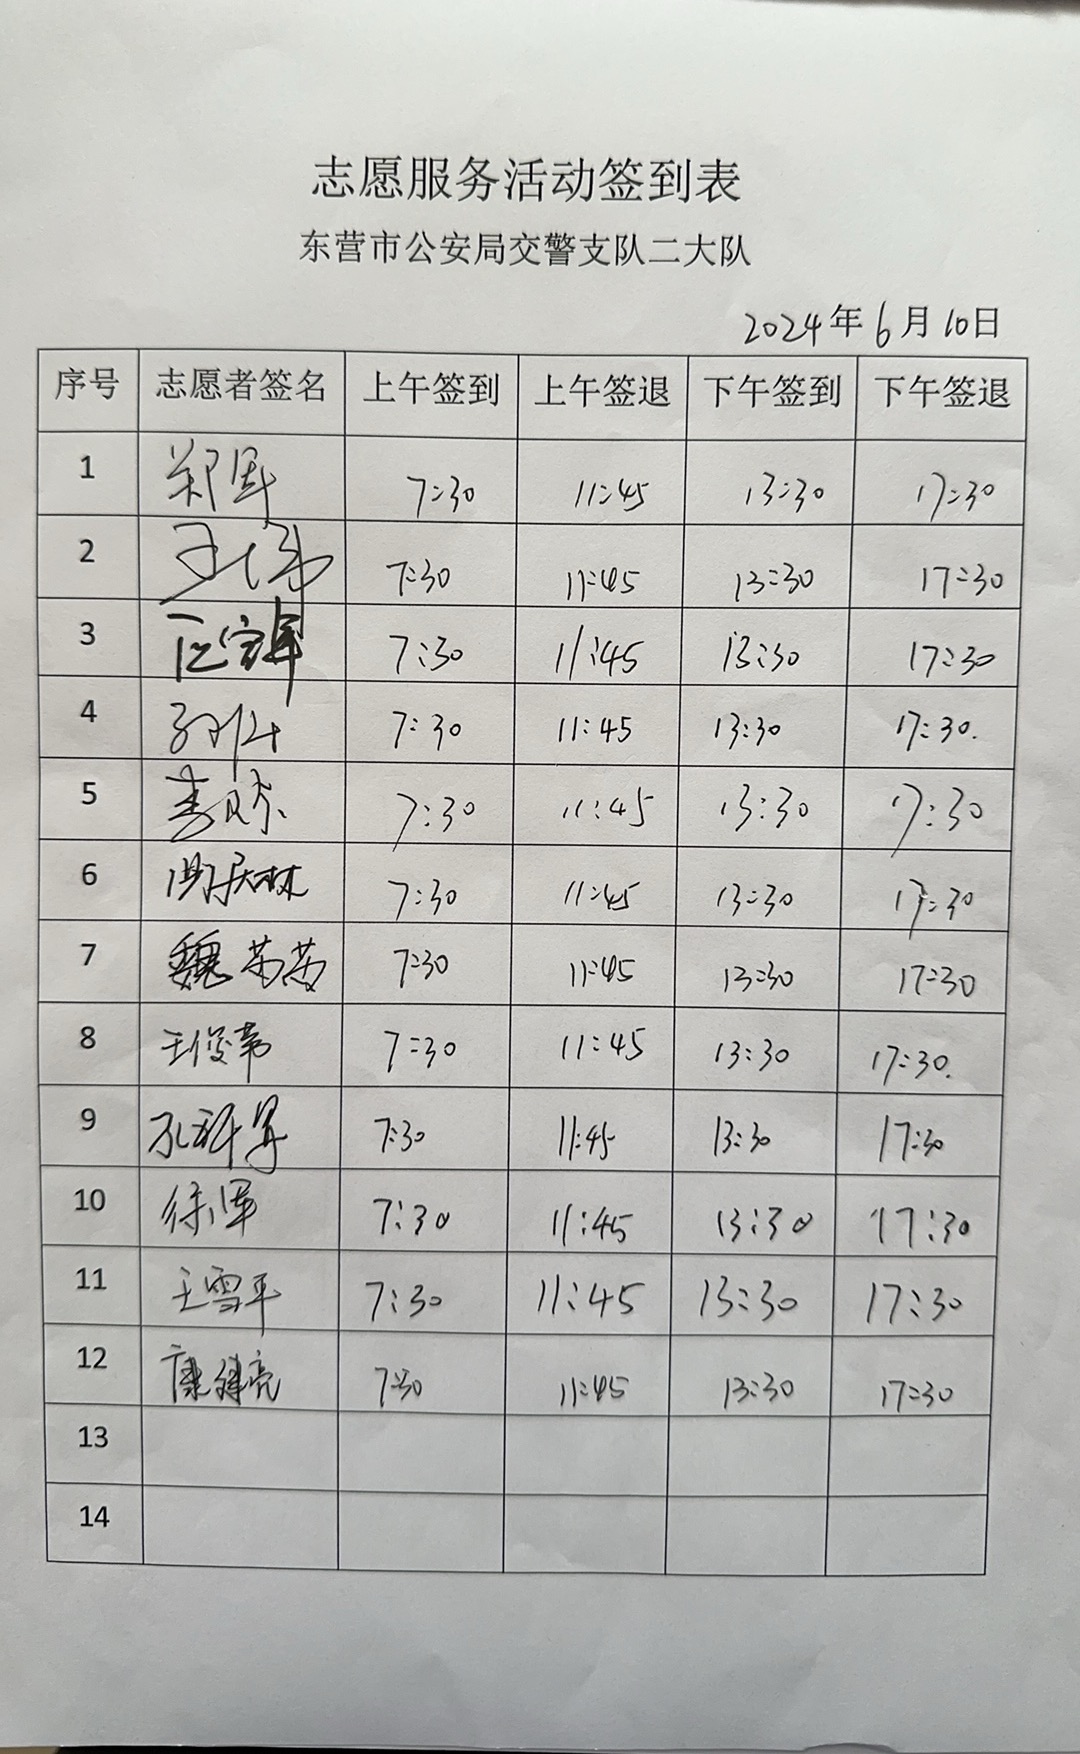 志愿服务活动签到表
东营市公安局交警支队二大队
2024年6月10日
序号 志愿者签名 上午签到 上午签退 下午签到 下午签退
1 郑军 7:30 11:45 13:30 17:30
2 王伟 7:30 11:45 13:30 17:30
3 7:30 11:45 13:30 17:30
4 7:30 11:45 13:30 17:30.
5 7:30 11:45 13:30 17:30
6 7:30 11:45 13:30 17:30
7 魏芳芳 7:30 11:45 13:30 17:30
8 7:30 11:45 13:30 17:30.
9 7:30 11:45 13:30 17:30
10 徐军 7:30 11:45 13:30 17:30
11 王雪平 7:30 11:45 13:30 17:30
12 康健亮 7:30 11:45 13:30 17:30
13
14